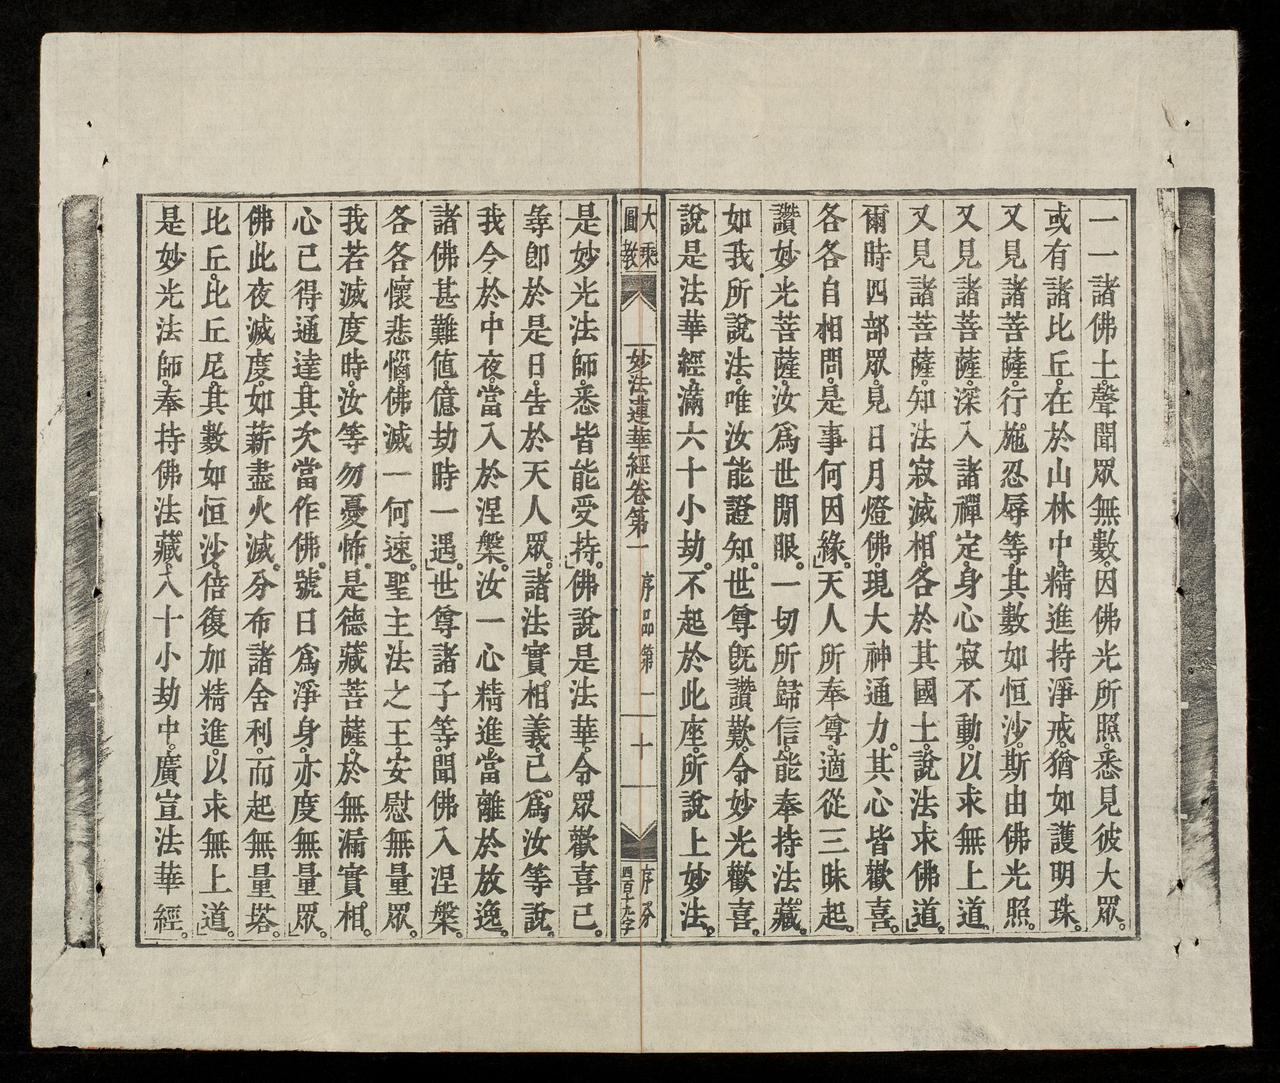 一一諸佛土。聲聞眾無數。因佛光所照。悉見彼大眾。
或有諸比丘。在於山林中。精進持淨戒。猶如護明珠。
又見諸菩薩。行施忍辱等。其數如恒沙。斯由佛光照。
又見諸菩薩。深入諸禪定。身心寂不動。以求無上道。
又見諸菩薩。知法寂滅相。各於其國土。說法求佛道。」
爾時四部眾。見日月燈佛。現大神通力。其心皆歡喜。
各各自相問。是事何因緣。」天人所奉尊。適從三昧起。
讚妙光菩薩。汝為世間眼。一切所歸信。能奉持法藏。
如我所說法。唯汝能證知。世尊既讚歎。令妙光歡喜。
說是法華經。滿六十小劫。不起於此座。所說上妙法。
大乘
圓教
妙法蓮華經卷第一
序品第一
十
序分
四百十九字
是妙光法師。悉皆能受持。」佛說是法華。令眾歡喜已。
尋即於是日。告於天人眾。諸法實相義。已為汝等說。
我今於中夜。當入於涅槃。汝一心精進。當離於放逸。
諸佛甚難值。億劫時一遇。」世尊諸子等。聞佛入涅槃。
各各懷悲惱。佛滅一何速。聖主法之王。安慰無量眾。
我若滅度時。汝等勿憂怖。是德藏菩薩。於無漏實相。
心已得通達。其次當作佛。號曰為淨身。亦度無量眾。」
佛此夜滅度。如薪盡火滅。分布諸舍利。而起無量塔。
比丘比丘尼。其數如恒沙。倍復加精進。以求無上道。」
是妙光法師。奉持佛法藏。八十小劫中。廣宣法華經。